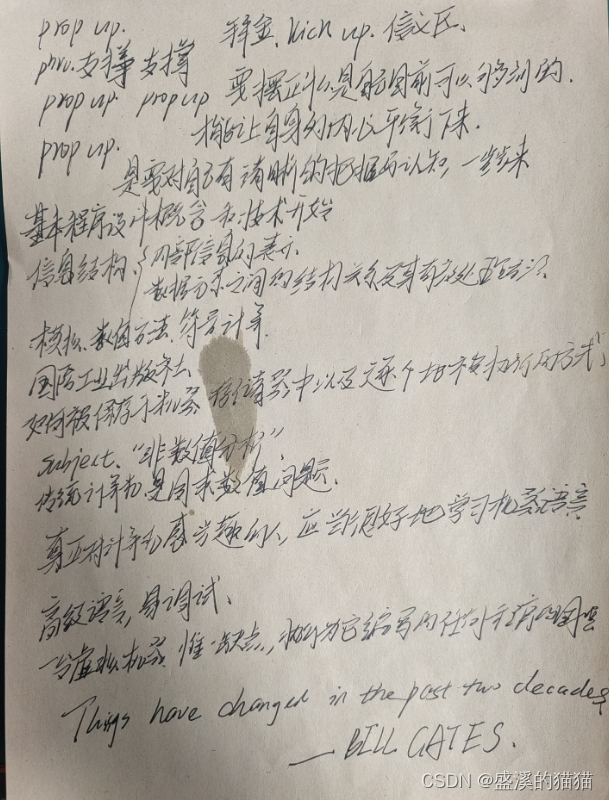 prop up. 释金. kick up. 信义区.
phr. 支撑 支撑
prop up. prop up 要摆正什么是自己目前可以够到的.
prop up. 才能让自身的内心平衡下来.
是要对自己有清晰的把握和认知, 一步步来
基本程序设计概念和技术开始
信息结构: { 内部信息的表示
数据元素之间的结构关系及其有效处理方法.
模拟、数值方法、符号计算
国防工业出版社.
如何被保存于机器存储器中以及逐个地被执行的方式,
subject. "非数值分析"
传统计算机是用来求数值问题.
真正对计算机感兴趣的人, 应当很好地学习机器语言
高级语言, 易调试.
一台虚拟机器. 惟一缺点, 为它编写的任何
Things have changed in the past two decades
—BILL GATES.
CSDN @盛溪的猫猫